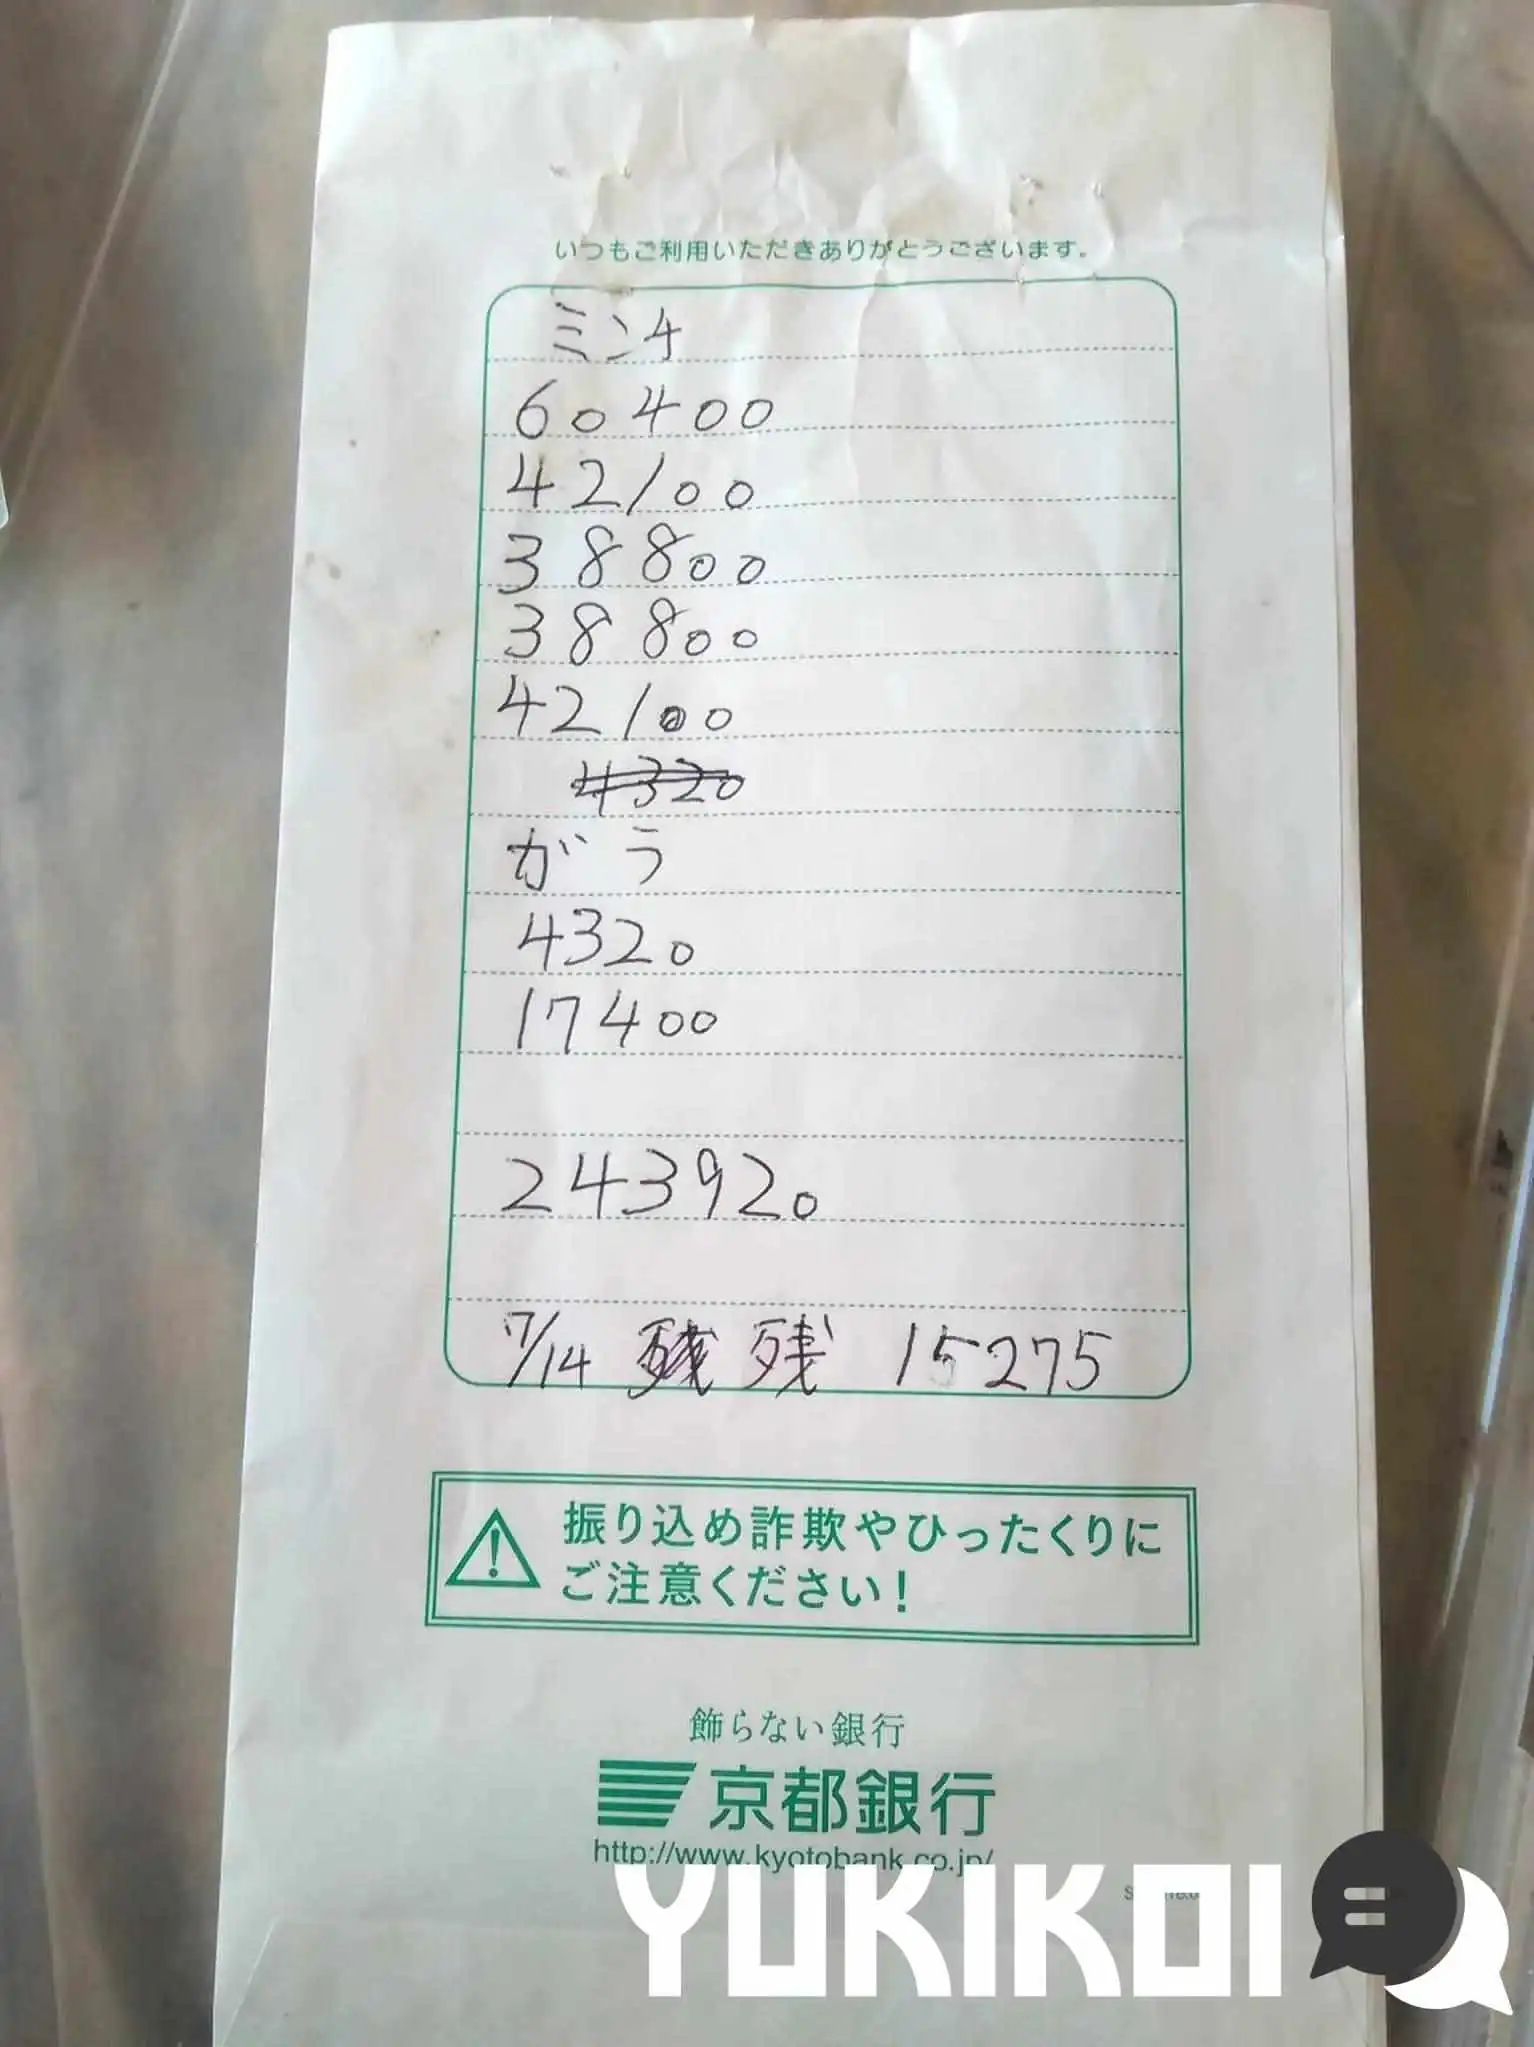 いつもご利用いただきありがとうございます。
ミンチ
60400
42100
38800
38800
42100
4320
がう
4320
17400
243920
7/14 残 残 15275
振り込め詐欺やひったくりに
ご注意ください!
飾らない銀行
京都銀行
http://www.kyotobank.co.jp/
YUKIKOI